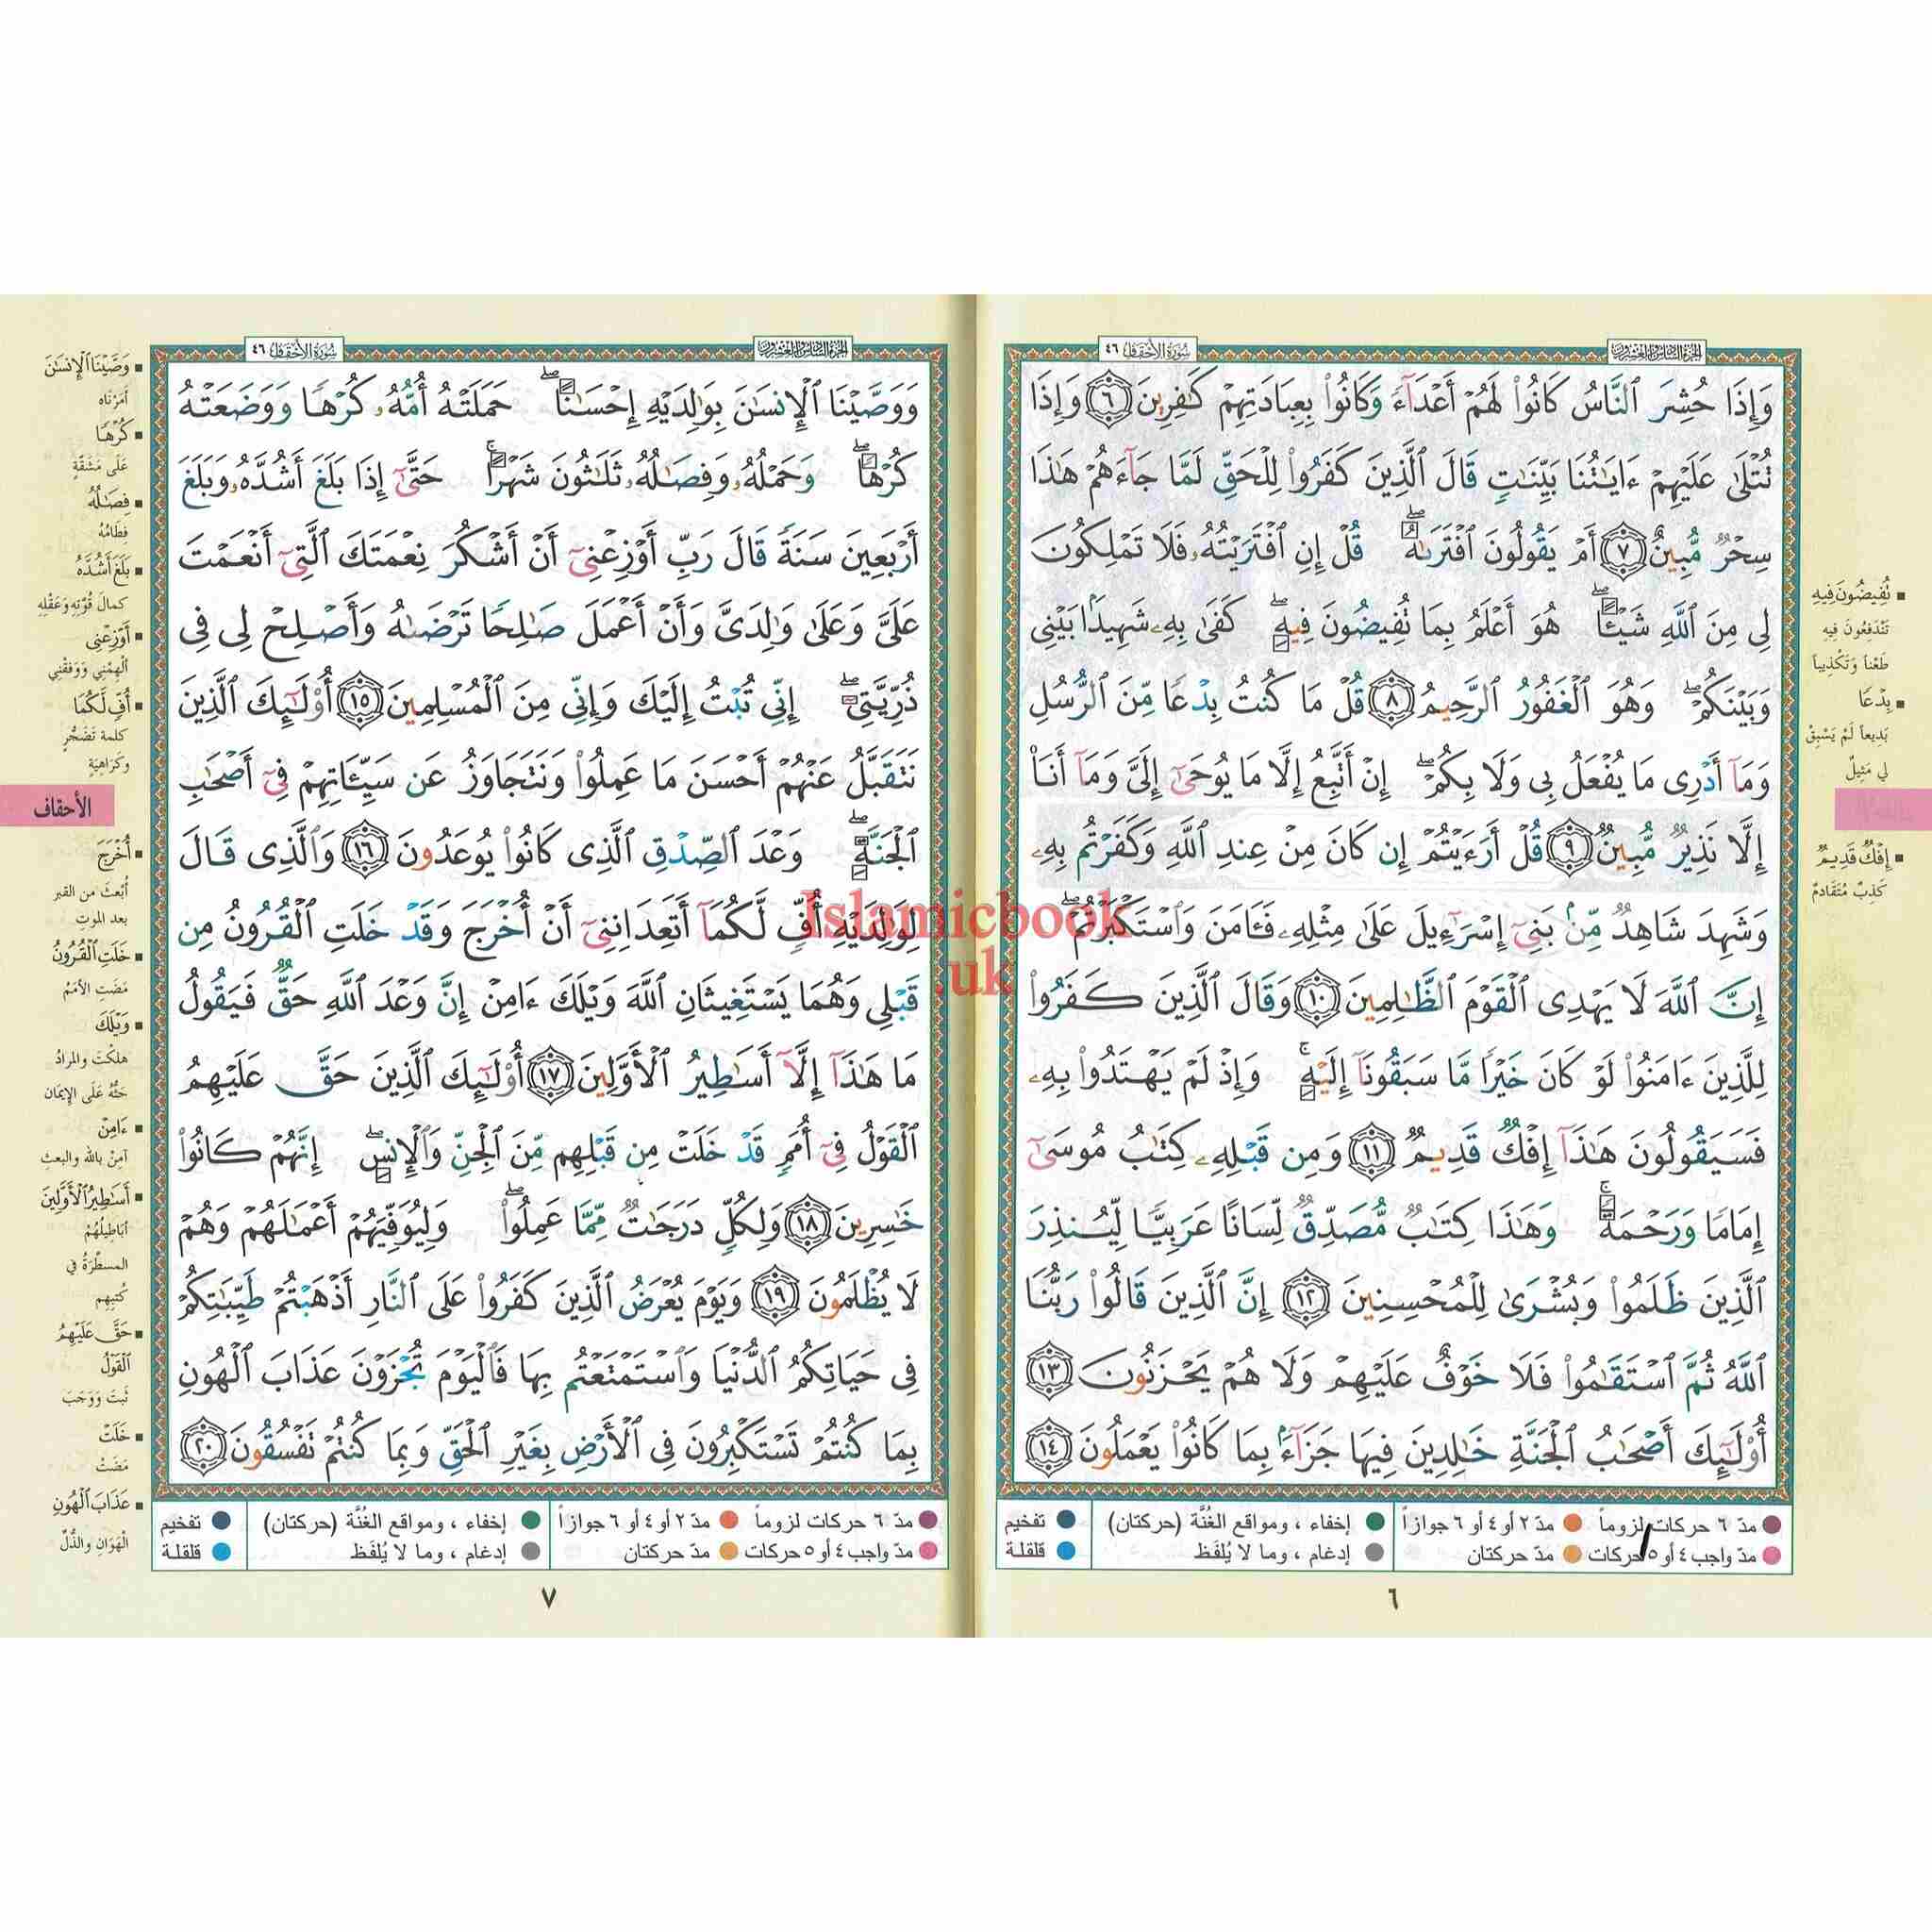 الجزء السادس والعشرون
سورة الأحقاف ٤٦
وَإِذَا حُشِرَ ٱلنَّاسُ كَانُوا۟ لَهُمْ أَعْدَآءً وَكَانُوا۟ بِعِبَادَتِهِمْ كَـٰفِرِينَ ٦ وَإِذَا
تُتْلَىٰ عَلَيْهِمْ ءَايَـٰتُنَا بَيِّنَـٰتٍ قَالَ ٱلَّذِينَ كَفَرُوا۟ لِلْحَقِّ لَمَّا جَآءَهُمْ هَـٰذَا
سِحْرٌ مُّبِينٌ ٧ أَمْ يَقُولُونَ ٱفْتَرَىٰهُ ۖ قُلْ إِنِ ٱفْتَرَيْتُهُۥ فَلَا تَمْلِكُونَ
لِى مِنَ ٱللَّهِ شَيْـًٔا ۖ هُوَ أَعْلَمُ بِمَا تُفِيضُونَ فِيهِ ۖ كَفَىٰ بِهِۦ شَهِيدًۢا بَيْنِى
وَبَيْنَكُمْ ۖ وَهُوَ ٱلْغَفُورُ ٱلرَّحِيمُ ٨ قُلْ مَا كُنتُ بِدْعًا مِّنَ ٱلرُّسُلِ
وَمَآ أَدْرِى مَا يُفْعَلُ بِى وَلَا بِكُمْ ۖ إِنْ أَتَّبِعُ إِلَّا مَا يُوحَىٰٓ إِلَىَّ وَمَآ أَنَا۠
إِلَّا نَذِيرٌ مُّبِينٌ ٩ قُلْ أَرَءَيْتُمْ إِن كَانَ مِنْ عِندِ ٱللَّهِ وَكَفَرْتُم بِهِۦ
وَشَهِدَ شَاهِدٌ مِّنۢ بَنِىٓ إِسْرَٰٓءِيلَ عَلَىٰ مِثْلِهِۦ فَـَٔامَنَ وَٱسْتَكْبَرْتُمْ ۖ
إِنَّ ٱللَّهَ لَا يَهْدِى ٱلْقَوْمَ ٱلظَّـٰلِمِينَ ١٠ وَقَالَ ٱلَّذِينَ كَفَرُوا۟
لِلَّذِينَ ءَامَنُوا۟ لَوْ كَانَ خَيْرًا مَّا سَبَقُونَآ إِلَيْهِ ۚ وَإِذْ لَمْ يَهْتَدُوا۟ بِهِۦ
فَسَيَقُولُونَ هَـٰذَآ إِفْكٌ قَدِيمٌ ١١ وَمِن قَبْلِهِۦ كِتَـٰبُ مُوسَىٰٓ
إِمَامًا وَرَحْمَةً ۚ وَهَـٰذَا كِتَـٰبٌ مُّصَدِّقٌ لِّسَانًا عَرَبِيًّا لِّيُنذِرَ
ٱلَّذِينَ ظَلَمُوا۟ وَبُشْرَىٰ لِلْمُحْسِنِينَ ١٢ إِنَّ ٱلَّذِينَ قَالُوا۟ رَبُّنَا
ٱللَّهُ ثُمَّ ٱسْتَقَـٰمُوا۟ فَلَا خَوْفٌ عَلَيْهِمْ وَلَا هُمْ يَحْزَنُونَ ١٣
أُو۟لَـٰٓئِكَ أَصْحَـٰبُ ٱلْجَنَّةِ خَـٰلِدِينَ فِيهَا جَزَآءًۢ بِمَا كَانُوا۟ يَعْمَلُونَ ١٤
تُفِيضُونَ فِيهِ
تَنْدَفِعُونَ فِيهِ
طَعْناً وَتَكْذِيباً
بِدْعًا
بَدِيعاً لَمْ يَسْبِقْ
لي مَثِيلٌ
إِفْكٌ قَدِيمٌ
كَذِبٌ مُتَقَادِمٌ
مدّ ٦ حركات لزوماً مدّ ٢ أو ٤ أو ٦ جوازاً إخفاء ، ومواقع الغُنَّة (حركتان) تفخيم
مدّ واجب ٤ أو ٥ حركات مدّ حركتان إدغام ، وما لا يُلفَظ قلقلة
٦
الجزء السادس والعشرون
سورة الأحقاف ٤٦
وَوَصَّيْنَا ٱلْإِنسَـٰنَ بِوَٰلِدَيْهِ إِحْسَـٰنًا ۖ حَمَلَتْهُ أُمُّهُۥ كُرْهًا وَوَضَعَتْهُ
كُرْهًا ۖ وَحَمْلُهُۥ وَفِصَـٰلُهُۥ ثَلَـٰثُونَ شَهْرًا ۚ حَتَّىٰٓ إِذَا بَلَغَ أَشُدَّهُۥ وَبَلَغَ
أَرْبَعِينَ سَنَةً قَالَ رَبِّ أَوْزِعْنِىٓ أَنْ أَشْكُرَ نِعْمَتَكَ ٱلَّتِىٓ أَنْعَمْتَ
عَلَىَّ وَعَلَىٰ وَٰلِدَىَّ وَأَنْ أَعْمَلَ صَـٰلِحًا تَرْضَىٰهُ وَأَصْلِحْ لِى فِى
ذُرِّيَّتِىٓ ۖ إِنِّى تُبْتُ إِلَيْكَ وَإِنِّى مِنَ ٱلْمُسْلِمِينَ ١٥ أُو۟لَـٰٓئِكَ ٱلَّذِينَ
نَتَقَبَّلُ عَنْهُمْ أَحْسَنَ مَا عَمِلُوا۟ وَنَتَجَاوَزُ عَن سَيِّـَٔاتِهِمْ فِىٓ أَصْحَـٰبِ
ٱلْجَنَّةِ ۖ وَعْدَ ٱلصِّدْقِ ٱلَّذِى كَانُوا۟ يُوعَدُونَ ١٦ وَٱلَّذِى قَالَ
لِوَٰلِدَيْهِ أُفٍّ لَّكُمَآ أَتَعِدَانِنِىٓ أَنْ أُخْرَجَ وَقَدْ خَلَتِ ٱلْقُرُونُ مِن
قَبْلِى وَهُمَا يَسْتَغِيثَانِ ٱللَّهَ وَيْلَكَ ءَامِنْ إِنَّ وَعْدَ ٱللَّهِ حَقٌّ فَيَقُولُ
مَا هَـٰذَآ إِلَّآ أَسَـٰطِيرُ ٱلْأَوَّلِينَ ١٧ أُو۟لَـٰٓئِكَ ٱلَّذِينَ حَقَّ عَلَيْهِمُ
ٱلْقَوْلُ فِىٓ أُمَمٍ قَدْ خَلَتْ مِن قَبْلِهِم مِّنَ ٱلْجِنِّ وَٱلْإِنسِ ۖ إِنَّهُمْ كَانُوا۟
خَـٰسِرِينَ ١٨ وَلِكُلٍّ دَرَجَـٰتٌ مِّمَّا عَمِلُوا۟ ۖ وَلِيُوَفِّيَهُمْ أَعْمَـٰلَهُمْ وَهُمْ
لَا يُظْلَمُونَ ١٩ وَيَوْمَ يُعْرَضُ ٱلَّذِينَ كَفَرُوا۟ عَلَى ٱلنَّارِ أَذْهَبْتُمْ طَيِّبَـٰتِكُمْ
فِى حَيَاتِكُمُ ٱلدُّنْيَا وَٱسْتَمْتَعْتُم بِهَا فَٱلْيَوْمَ تُجْزَوْنَ عَذَابَ ٱلْهُونِ
بِمَا كُنتُمْ تَسْتَكْبِرُونَ فِى ٱلْأَرْضِ بِغَيْرِ ٱلْحَقِّ وَبِمَا كُنتُمْ تَفْسُقُونَ ٢٠
وَصَّيْنَا ٱلْإِنسَـٰنَ
أَمَرْنَاه
كُرْهًا
عَلَى مَشَقَّةٍ
فِصَـٰلُهُ
فِطَامُهُ
بَلَغَ أَشُدَّهُ
كمالَ قُوَّتِهِ وَعَقْلِهِ
أَوْزِعْنِى
أَلْهِمْنِي وَوَفِّقْنِي
أُفٍّ لَّكُمَا
كلمة تَضَجُّرٍ
وكَرَاهِيَةٍ
الأحقاف
أُخْرَجَ
أُبْعَثَ من القبرِ
بعد الموتِ
خَلَتِ ٱلْقُرُونُ
مَضَتِ الأمَمُ
وَيْلَكَ
هلكْتَ والمرادُ
حَثُّهُ عَلَى الإِيمَانِ
ءَامِنْ
آمِنْ بالله والبعثِ
أَسَـٰطِيرُ ٱلْأَوَّلِينَ
أباطِيلُهُمْ
المسطَّرَةُ في
كُتُبِهِم
حَقَّ عَلَيْهِمُ
ٱلْقَوْلُ
ثَبَتَ وَوَجَبَ
خَلَتْ
مَضَتْ
عَذَابَ ٱلْهُونِ
الْهَوَانِ والذُّلِّ
مدّ ٦ حركات لزوماً مدّ ٢ أو ٤ أو ٦ جوازاً إخفاء ، ومواقع الغُنَّة (حركتان) تفخيم
مدّ واجب ٤ أو ٥ حركات مدّ حركتان إدغام ، وما لا يُلفَظ قلقلة
٧
Islamicbook
.uk